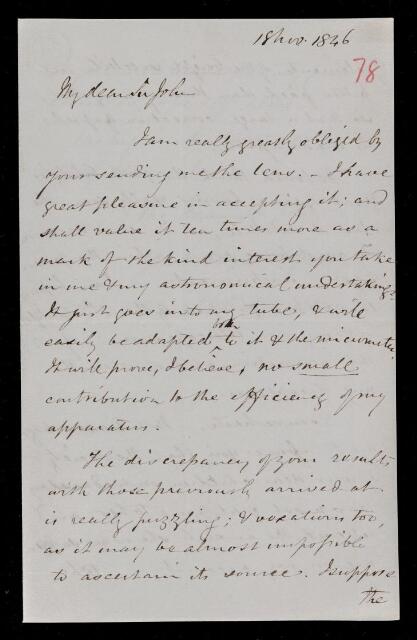 18 Nov. 1846
78
My dear Sir John
I am really greatly obliged by
your sending me the lens. – I have
great pleasure in accepting it; and
shall value it ten times more as a
mark of the kind interest you take
in me & my astronomical undertakings.
It just goes into my tube, & will
easily be adapted both to it & the micrometer.
It will prove, I believe, no small
contribution to the efficiency of my
apparatus.
The discrepancy of your results
with those previously arrived at
is really puzzling; & vexatious too,
as it may be almost impossible
to ascertain its source. I suppose
the